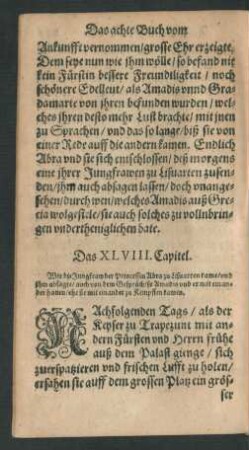 Das achte Buch vom
Ankunfft vernommen/ grosse Ehr erzeigte.
Dem seye nun wie jhm wölle/ so befand nie
kein Fürstin bessere Freundligkeit/ noch
schönere Edelleut/ als Amadis vnnd Gra-
damarte von jhren befunden wurden/ wel-
ches jhren desto mehr Lust brachte/ mit jnen
zu Sprachen/ vnd das so lange/ biß sie von
einer Rede auff die andern kamen. Endlich
Abra vnd sie sich entschlossen/ deß morgens
eine jhrer Jungfrawen zu Lisuarten zusen-
den/ jhm auch absagen lassen/ doch vnange-
sehen/ durch wen/ welches Amadis auß Gre-
cia wolgefiele/ sie auch solches zu vollnbrin-
gen vnderthenglichen bate.
Das XLVIII. Capitel.
Wie die Jungfraw der Princessin Abra zu Lisuarten kame/ vnd
jhm absagte/ auch von dem Gespräch/ so Amadis vnd er mit ein-
ander hatten/ ehe sie mit einander zu Kempffen kamen.
NAchfolgenden Tags/ als der
Keyser zu Trapezunt mit an-
dern Fürsten vnd Herrn frühe
auß dem Palast gienge/ sich
zuerspatzieren vnd frischen Lufft zu holen/
ersahen sie auff dem grossen Platz ein grös-
ser